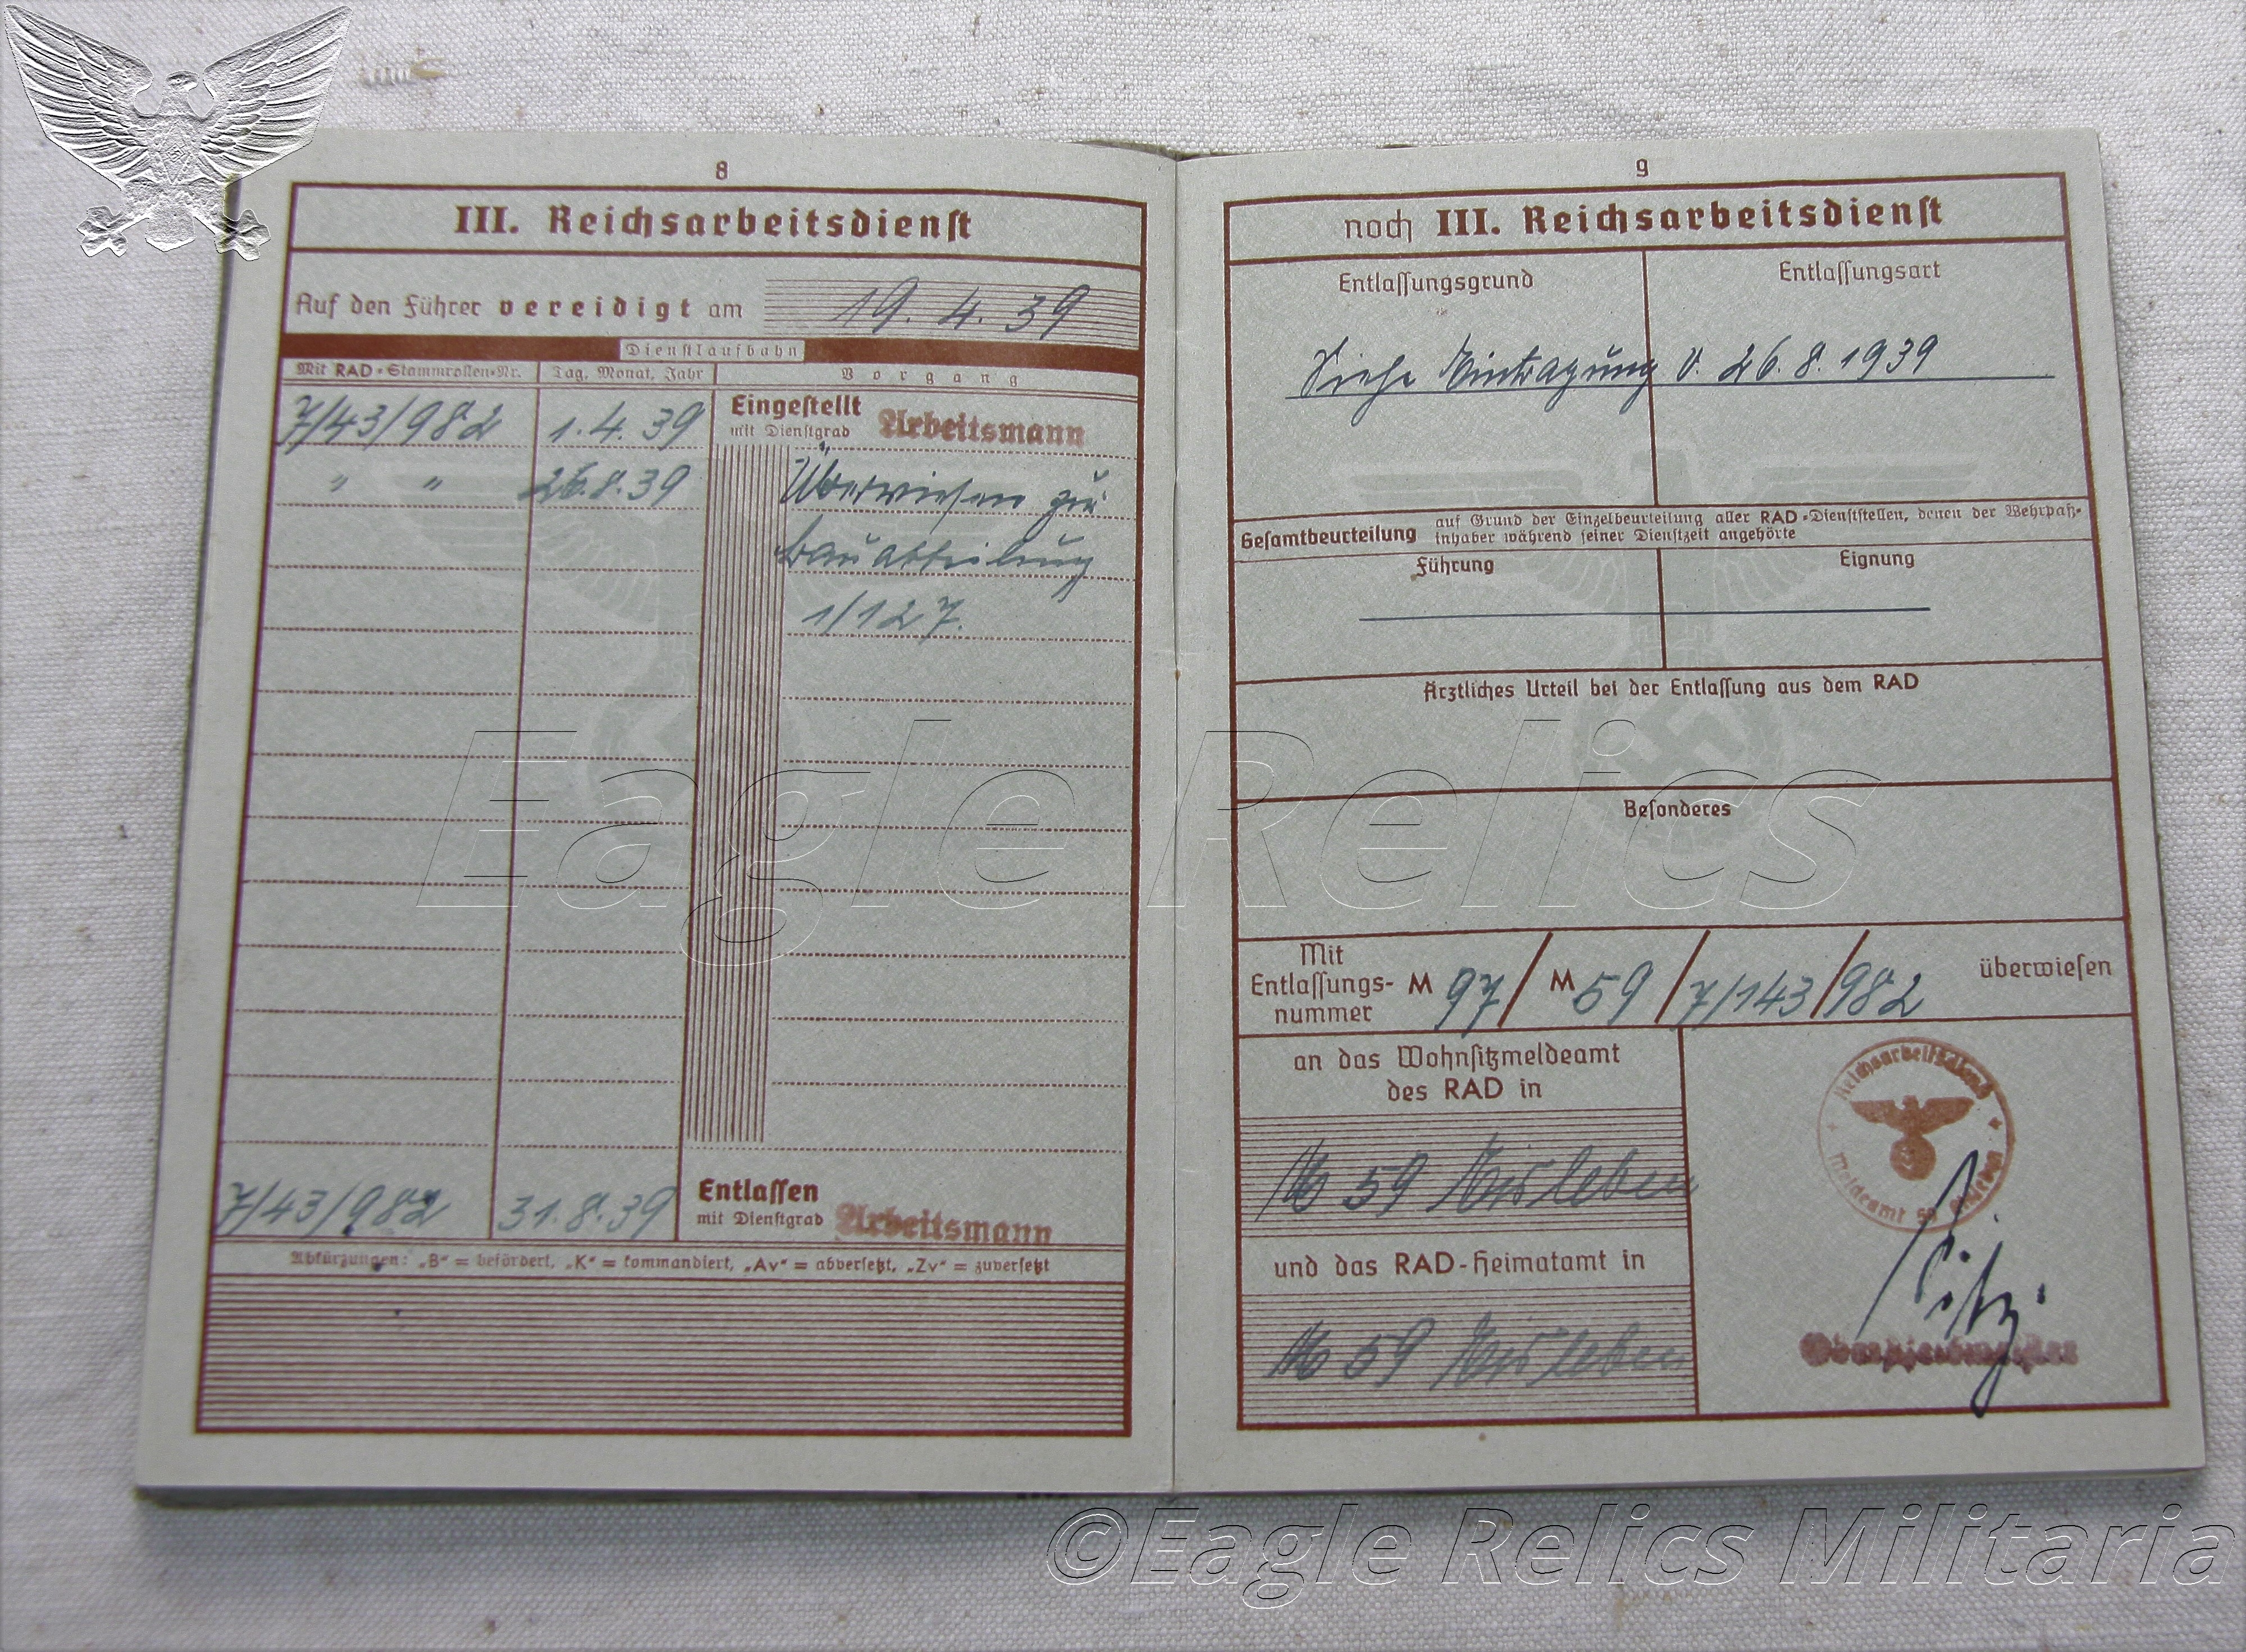 8
III. Reichsarbeitsdienst
Auf den Führer vereidigt am 19. 4. 39
Dienstlaufbahn
Mit RAD-Stammrollen-Nr. Tag, Monat, Jahr Vorgang
7/43/982 1. 4. 39 Eingestellt
mit Dienstgrad Arbeitsmann
" " 26. 8. 39 Überwiesen zur
Bauabteilung
1/127.
7/43/982 31. 8. 39 Entlassen
mit Dienstgrad Arbeitsmann
Abkürzungen: „B“ = befördert, „K“ = kommandiert, „Av“ = abversetzt, „Zv“ = zuversetzt
9
noch III. Reichsarbeitsdienst
Entlassungsgrund Entlassungsart
Siehe Eintragung v. 26. 8. 1939
Gesamtbeurteilung auf Grund der Einzelbeurteilung aller RAD-Dienststellen, denen der Wehrpaß-
inhaber während seiner Dienstzeit angehörte
Führung Eignung
Ärztliches Urteil bei der Entlassung aus dem RAD
Besonderes
Mit
Entlassungs-
nummer
M 97 / M 59 / 7/143 / 982 überwiesen
an das Wohnsitzmeldeamt
des RAD in
59 Eisleben
und das RAD-Heimatamt in
59 Eisleben
Reichsarbeitsdienst
Meldeamt 59 Eisleben
Eagle Relics
©Eagle Relics Militaria